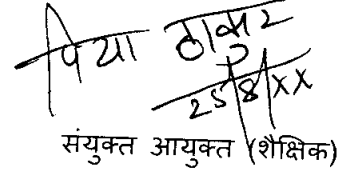 पिया ठाकुर
25/8/XX
संयुक्त आयुक्त (शैक्षिक)